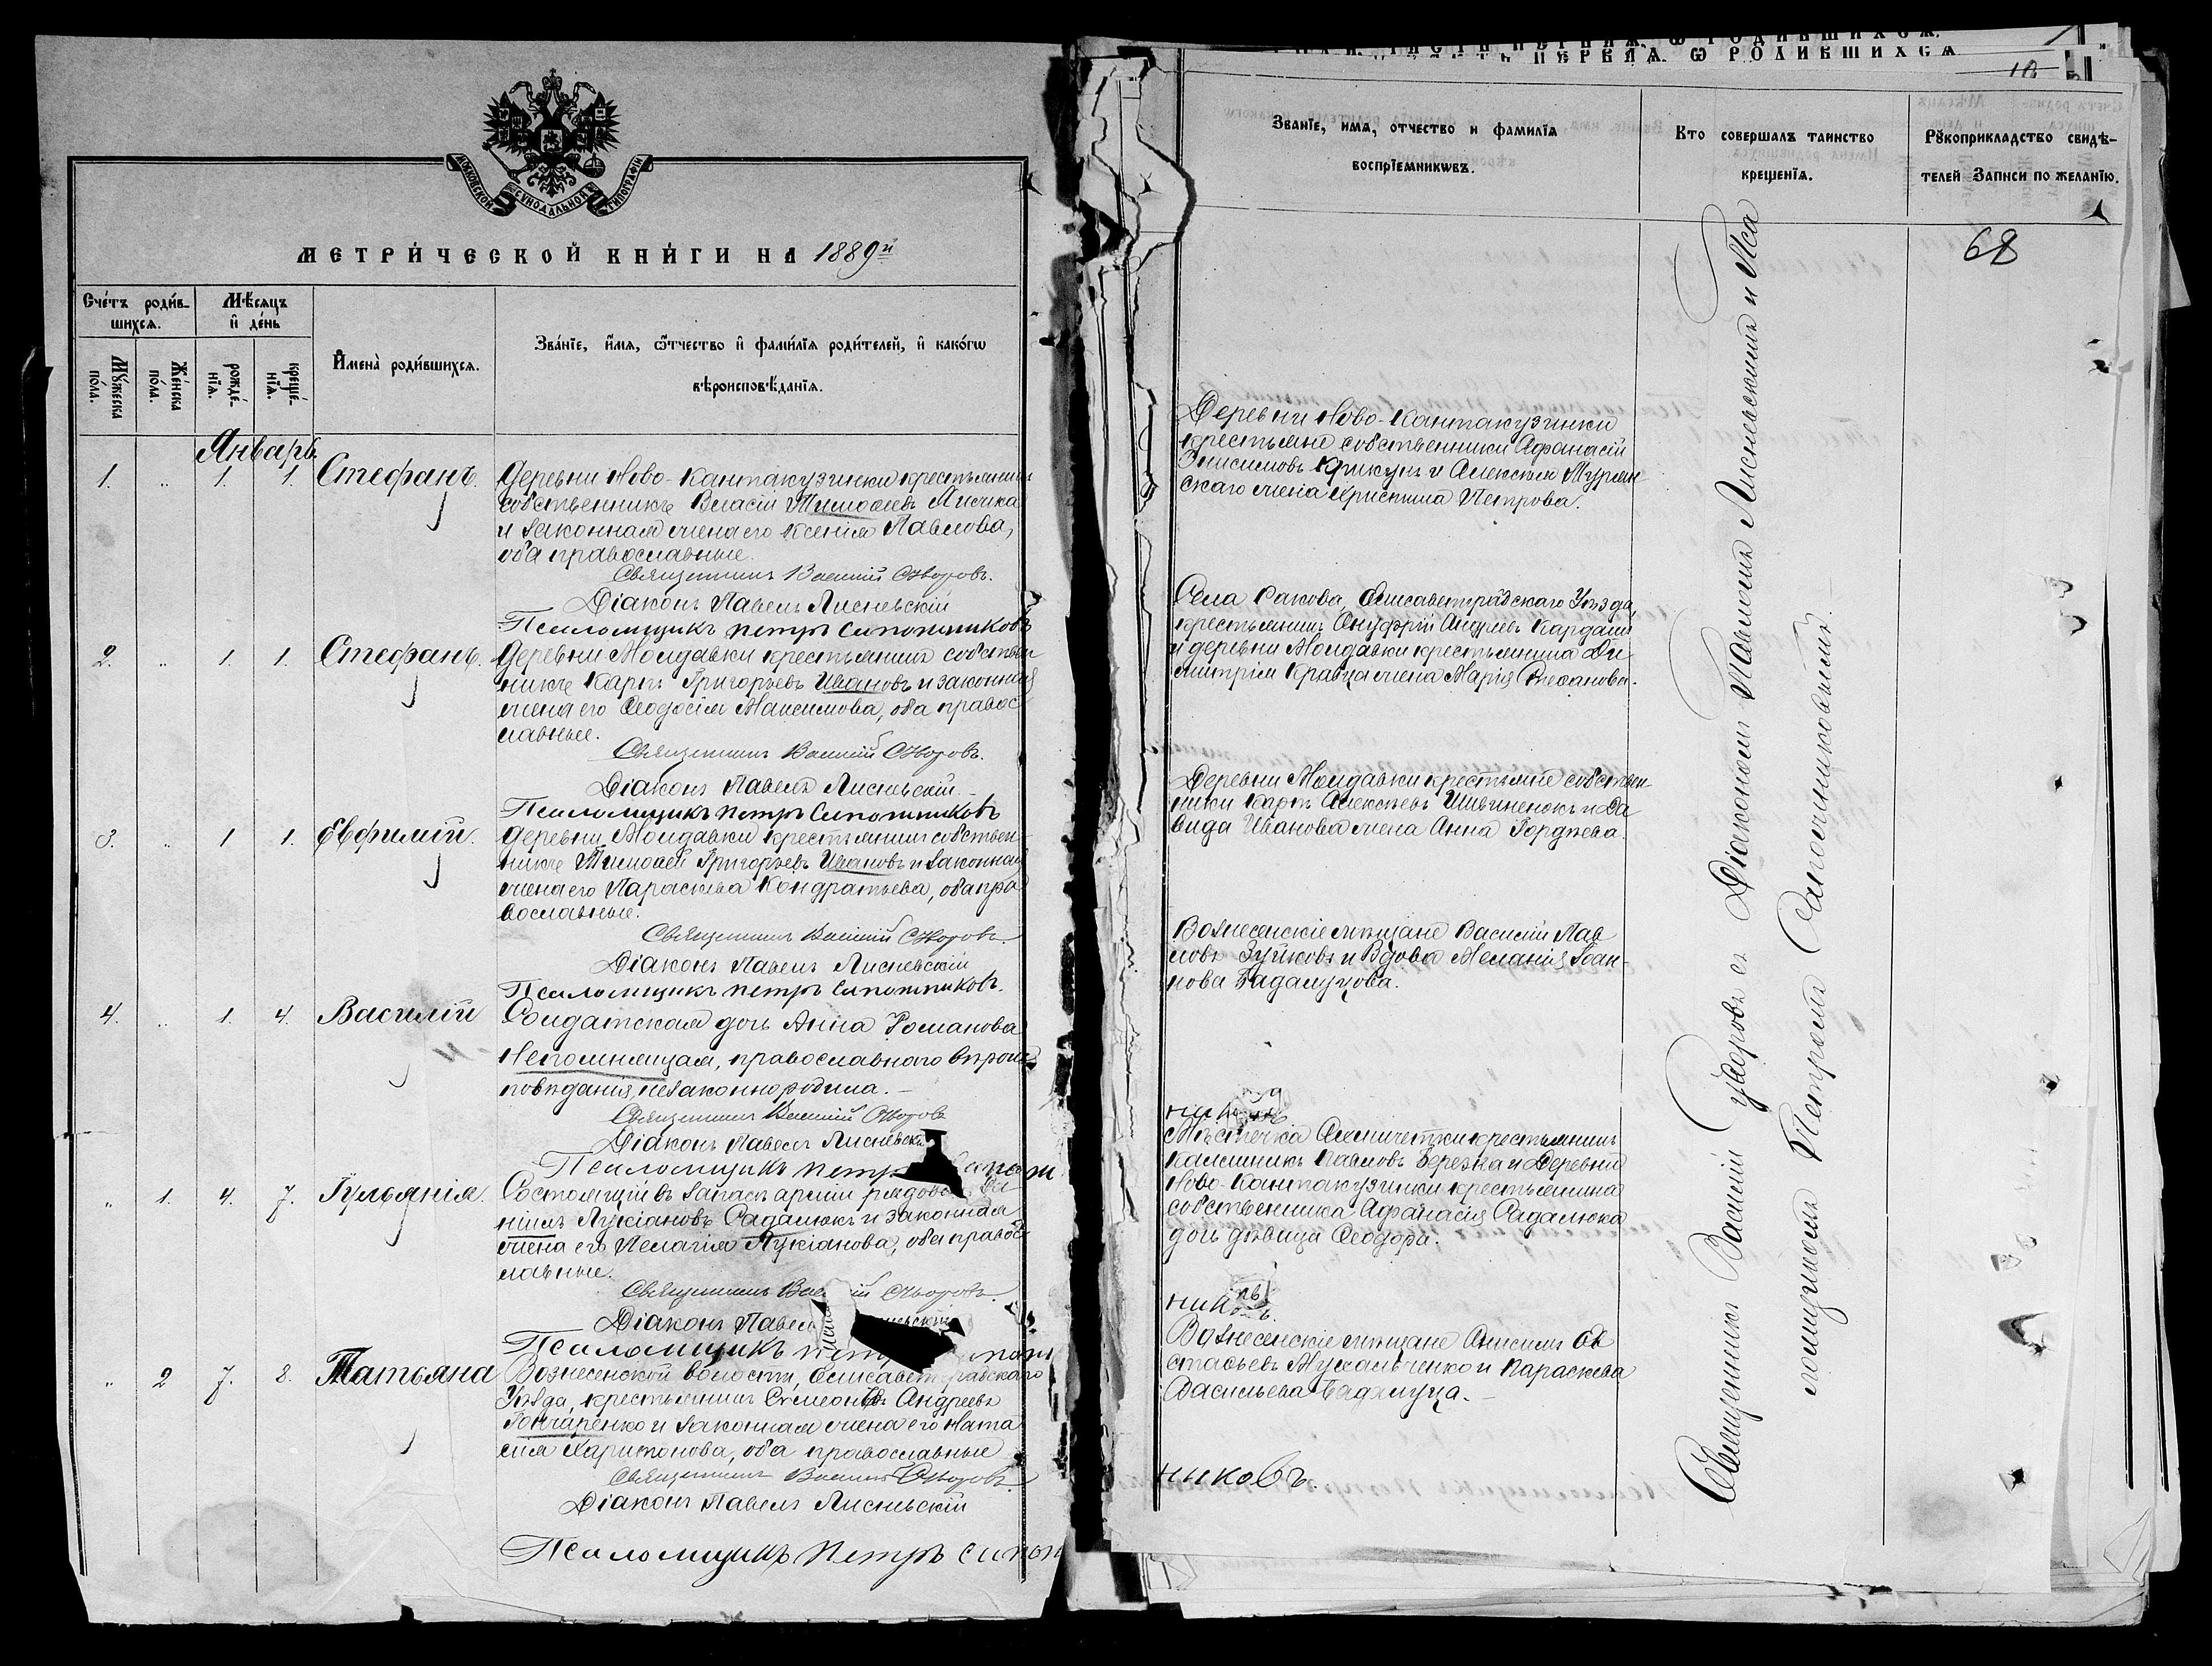 МОСКОВСКОЙ СѴНОДАЛЬНОЙ ТИПОГРАФІИ
МЕТРИ́ЧЕСКОЙ КНИ́ГИ НА 1889й
Счéтъ роди́в-
шихся.
Мѣ́сяцъ
и҆ дéнь
Мꙋ́жеска
пóла.
Жéнска
пóла.
рождé-
нїѧ.
крещé-
нїѧ.
И҆менà роди́вшихсѧ.
Звáнїе, и҆́мѧ, ѻ҆́тчество и҆ фами́лїѧ роди́телей, и҆ какóгѡ
вѣроисповѣ́данїѧ.
Январь.
1. „ 1. 1. Стефанъ.
Деревни Ново-Кантакузинки крестьянинъ
собственникъ Власій Тимофеевъ Лисика
и законная жена его Ксенія Павлова,
оба православные.
Священникъ Василій Суворовъ.
Діаконъ Павелъ Лисневскій
Псаломщикъ Петръ Сапожниковъ
2. „ 1. 1. Стефанъ.
Деревни Молдавки крестьянинъ собствен
никъ Карпъ Григорьевъ Ивановъ и законная
жена его Феодосія Максимова, оба правос
лавные.
Священникъ Василій Суворовъ.
Діаконъ Павелъ Лисневскій.
Псаломщикъ Петръ Сапожниковъ
3. „ 1 1. Евфимій.
Деревни Молдавки крестьянинъ собствен
никъ Тимофей Григорьевъ Ивановъ и законная
жена его Параскева Кондратьева, оба пра
вославные.
Священникъ Василій Суворовъ.
Діаконъ Павелъ Лисневскій
Псаломщикъ Петръ Сапожниковъ.
4. „ 1. 4. Василій
Солдатская дочь Анна Романова
Непомнящая, православнаго вѣроис
повѣданія, незаконнородила.—
Священникъ Василій Суворовъ
Діаконъ Павелъ Лисневскі
Псаломщикъ Петръ Сапож
„ 1. 4. 7. Іуліанія.
Состоящій въ запасѣ арміи рядовой
Лукіановъ Садалюкъ и законная
жена его Пелагія Лукіанова, оба правос
лавные.
Священникъ Василій Суворовъ.
Діаконъ Павелъ
Псаломщикъ Петръ
„ 2 7. 8. Татьяна
Вознесенской волости, Елисаветградскаго
Уѣзда, крестьянинъ Сѵмеонъ Андреевъ
Гончаренко и законная жена его Ната
лія Харитонова, оба православные
Священникъ Василій Суворовъ.
Діаконъ Павелъ Лисневскій
Псаломщикъ Петръ Сапож
ЧАСТЬ ПЕРВАѦ, Ѡ РОДИВШИХСѦ
Званїе, имѧ, отчество и фамилїѧ
воспрїемникѡвъ.
Кто совершалъ таинство
крещенїѧ.
Рꙋкоприкладство свидѣ-
телей Записи по желанїю.
68
Деревни Ново-Кантакузинки
крестьяне собственники Афанасій
Онисимовъ Крикунъ и Алексѣя Мурлян
скаго жена Христина Петрова.
Села Сакова, Елисаветградскаго Уѣзда,
крестьянинъ Онуфрій Андреевъ Кардаш
и деревни Молдавки крестьянина Ди
митрія Кравца жена Марія Стефанова.
Деревни Молдавки крестьяне собствен
ники Карпъ Алексѣевъ Шивиненокъ и Да
вида Иванова жена Анна Гордѣева.
Вознесенскіе мѣщане Василій Пав
ловъ Зуйковъ и Вдова Меланія Іоан-
нова Бадалуцова.
никовъ
Мѣстечка крестьянинъ
Калинникъ Павловъ Березка и Деревни
Ново-Кантакузинки крестьянина
собственника Афанасія Садалюка
дочь дѣвица Феодора.
никовъ.
Вознесенскіе мѣщане Онисимъ Ев
стафьевъ Мухальченко и Параскева
Васильева Бадалуца.—
никовъ.
Священникъ Василій Суворовъ съ Діакономъ Павломъ Лисневскимъ и Пса
ломщикомъ Петромъ Сапожниковымъ.—